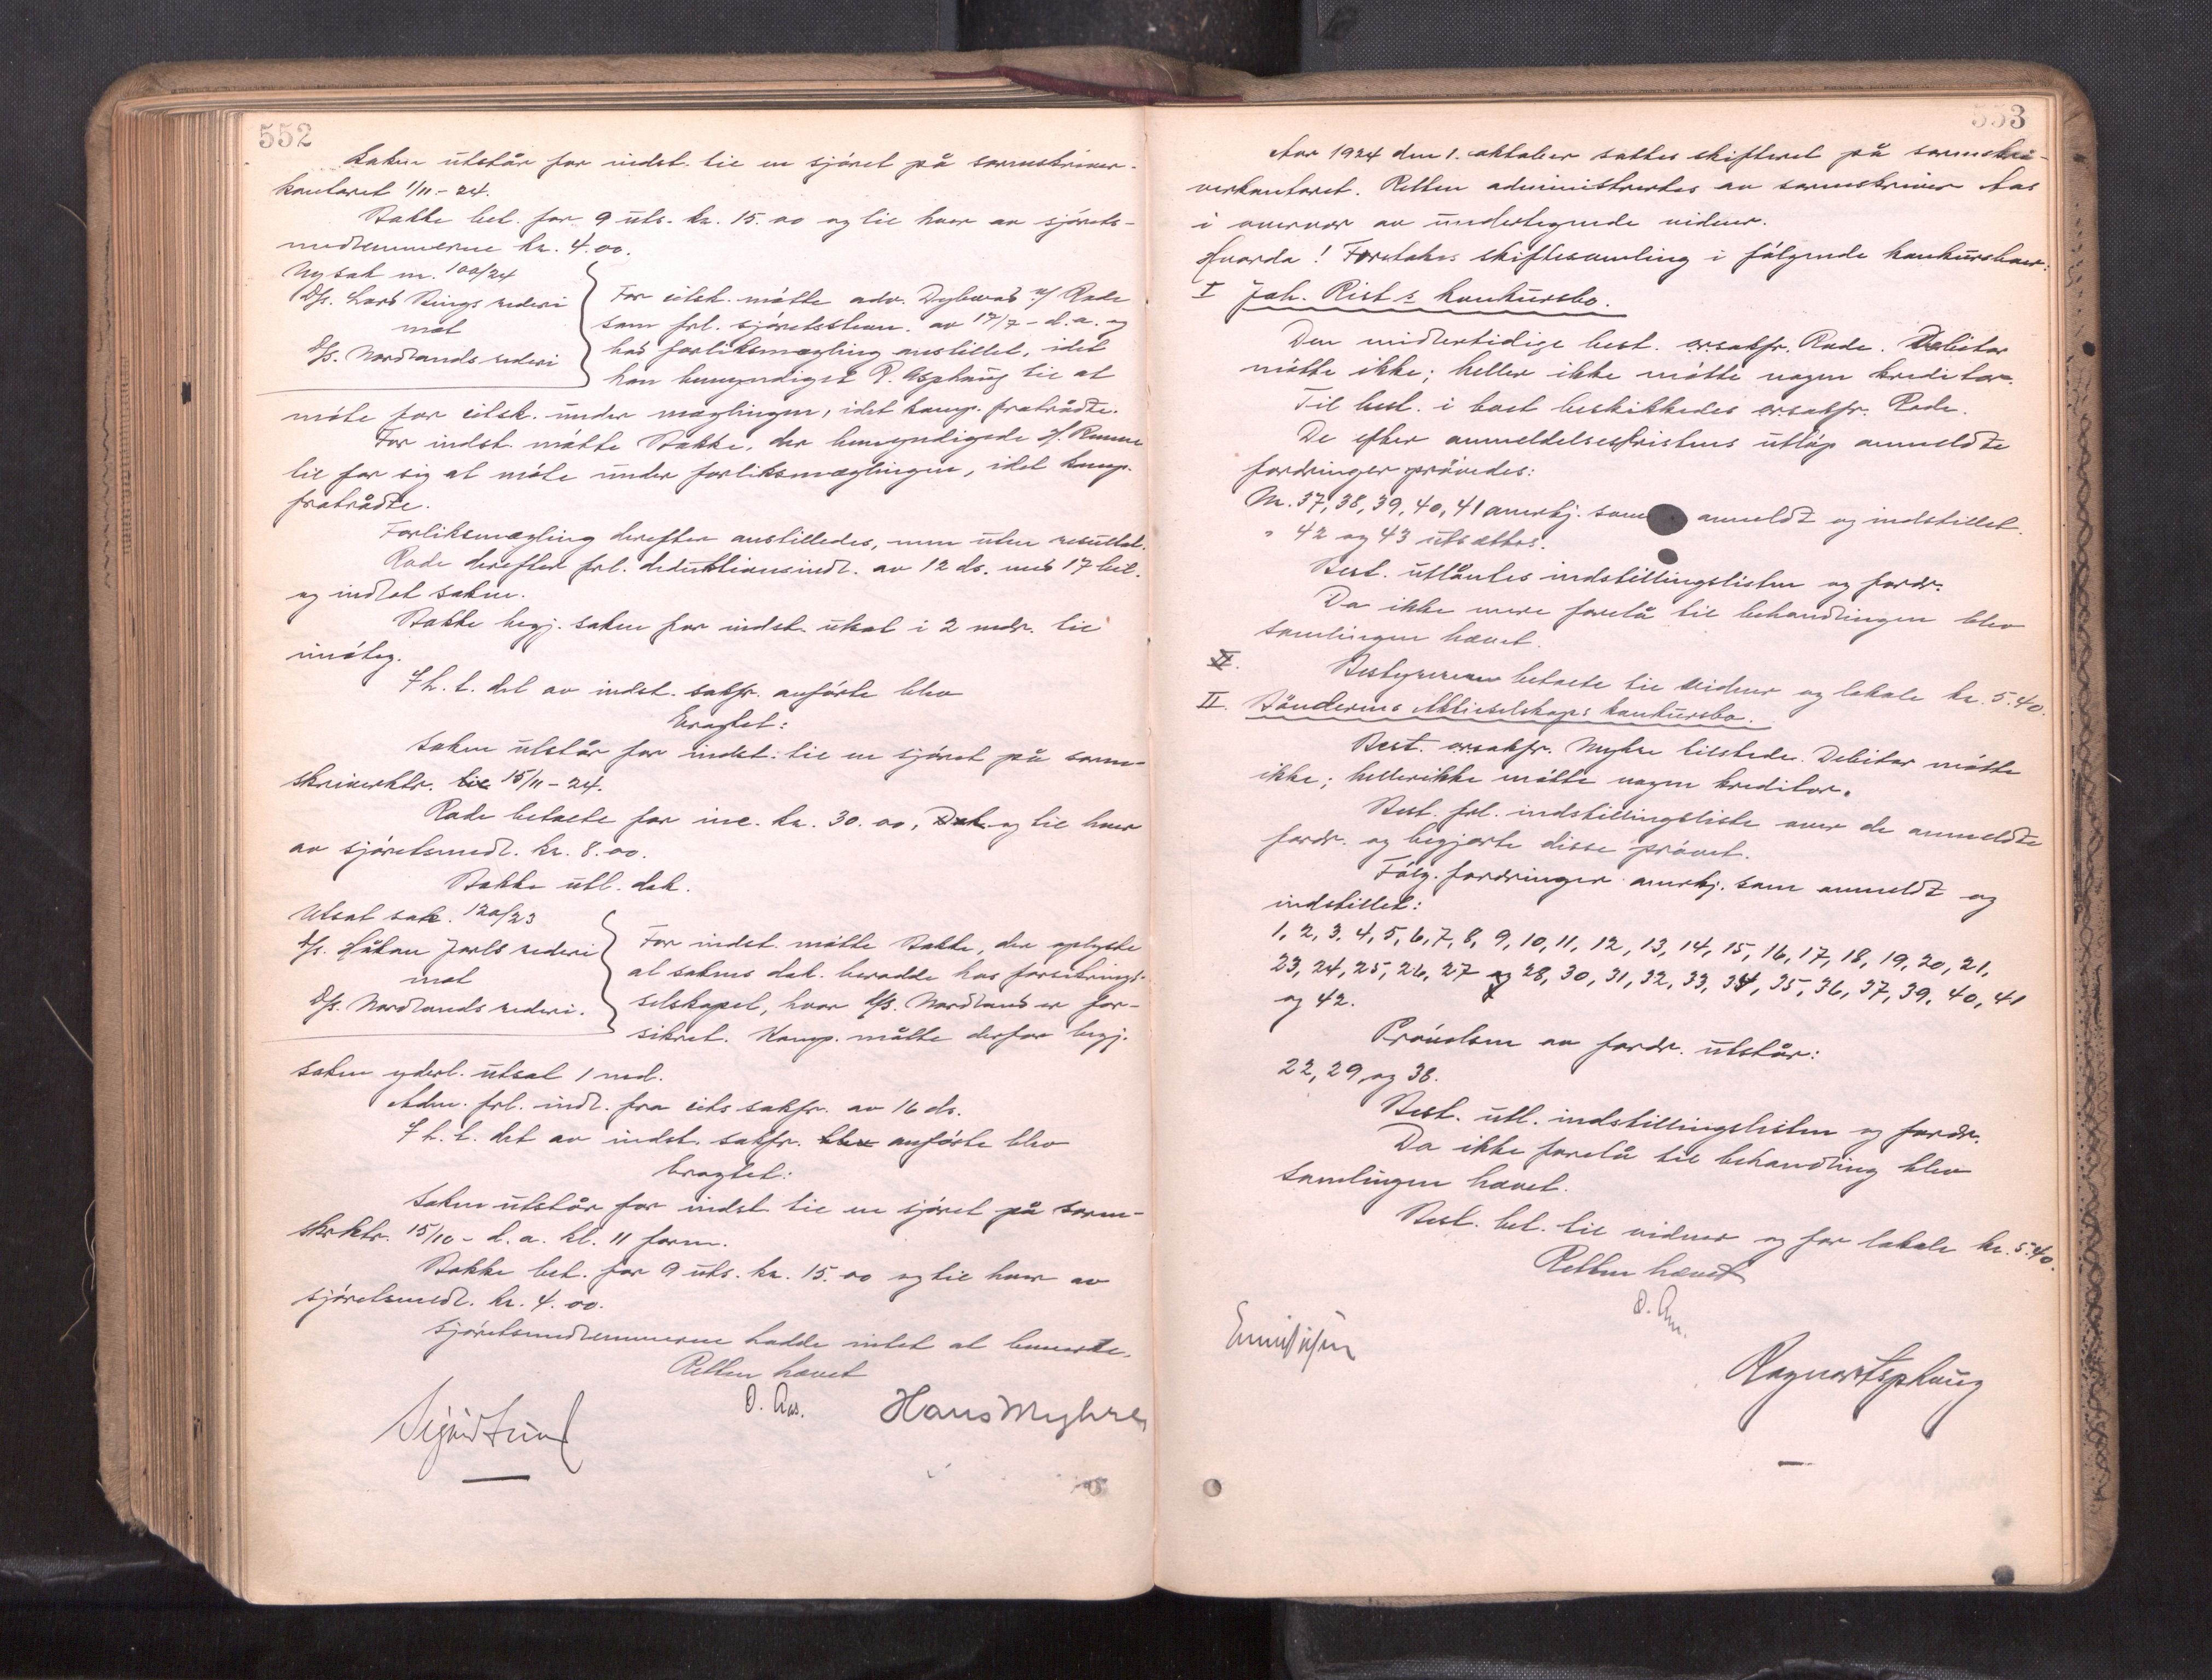 552
Saken utstår for indst. til en sjøret på sorenskriver-
kontoret 1/11-24.
Stakke bet. for 9 uts. kr. 15.00 og til hver av sjørets-
medlemmerne kr. 4.00.
Ny sak nr. 100/24
D/s. Lars Rings rederi
mot
D/s. Nordlands rederi
For citsk. møtte adv. Dybwad v/ Rode
som frl. sjøretsstevn. av 17/7-d.a. og
had forliksmægling anstillet, idet
han bemyndiget R. Asphaug til at
møte for citsk. under mæglingen, idet komp. fratrådte.
For indst. møtte Stakke, der bemyndigede H. Rumme
til for sig at møte under forliksmæglingen, idet komp.
fratrådte.
Forliksmægling derefter anstilledes, men uten resultat.
Rode derefter frl. deduktionsindl. av 12 ds. med 17 bil.
og indlot saken.
Stakke begj. saken for indst. utsat i 2 mdr. til
imøteg.
I h. t. det av indst. sakfr. anførte blev
Eragtet:
Saken utstår for indst. til en sjøret på soren-
skriverktr. til 15/11-24.
Rode betalte for inc. kr. 30.00, Dok. og til hver
av sjøretsmedl. kr. 8.00.
Stakke utl. dok.
Utsat sak. 120/23
D/s. Håkon Jarls rederi
mot
D/s. Nordlands rederi.
For indst. møtte Stakke, der oplyste
at sakens dok. berodde hos forsikrings-
selskapet, hvor D/s. Nordland er for-
sikret. Komp. måtte derfor begj.
saken yderl. utsat 1 md.
Adm. frl. indl. fra cits sakfr. av 16 ds.
I h. t. det av indst. sakfr. blev anførte blev
Eragtet:
Saken utstår for indst. til en sjøret på soren-
skrktr. 15/10-d.a. kl. 11 form.
Stakke bet. for 9 uts. kr. 15.00 og til hver av
sjøretsmedl. kr. 4.00.
Sjøretsmedlemmerne hadde intet at bemerke.
Retten hævet
O. Aas.
Hans Myhre
Sigurd Lund
553
Aar 1924 den 1. oktober sattes skifteret på sorenskri-
verkontoret. Retten administrertes av sorenskriver Aas
i overvær av undertegnede vidner.
Hvorda! Foretokes skiftesamling i følgende konkursboer:
I Joh. Rists konkursbo.
Den midlertidige best. o.r.sakfr. Rode. Debitor
møtte ikke; heller ikke møtte nogen kreditor.
Til best. i boet beskikkedes o.r.sakfr. Rode.
De efter anmeldelsesfristens utløp anmeldte
fordringer prøvedes:
Nr. 37, 38, 39, 40, 41 anerkj. som anmeldt og indstillet.
" 42 og 43 utsættes.
Best. utlåntes indstillingslisten og fordr.
Da ikke mere forelå til behandlingen blev
samlingen hævet.
II. Bestyreren betalte til vidner og lokale kr. 5.40.
II. Bøndernes Aktieselskaps konkursbo.
Best. o.r.sakfr. Myhre tilstede. Debitor møtte
ikke; hellerikke møtte nogen kreditor.
Best. frl. indstillingsliste over de anmeldte
fordr. og begjærte disse prøvet.
Følg. fordringer anerkj. som anmeldt og
indstillet:
1, 2, 3, 4, 5, 6, 7, 8, 9, 10, 11, 12, 13, 14, 15, 16, 17, 18, 19, 20, 21,
23, 24, 25, 26, 27 og 28, 30, 31, 32, 33, 34, 35, 36, 37, 39, 40, 41
og 42.
Prøvelsen av fordr. utstår:
22, 29, og 38.
Best. utl. indstillingslisten og fordr.
Da ikke forelå til behandling blev
samlingen hævet.
Best. bet. til vidner og for lokale kr. 5.40.
Retten hævet
O. Aas.
Ragnar Asphaug